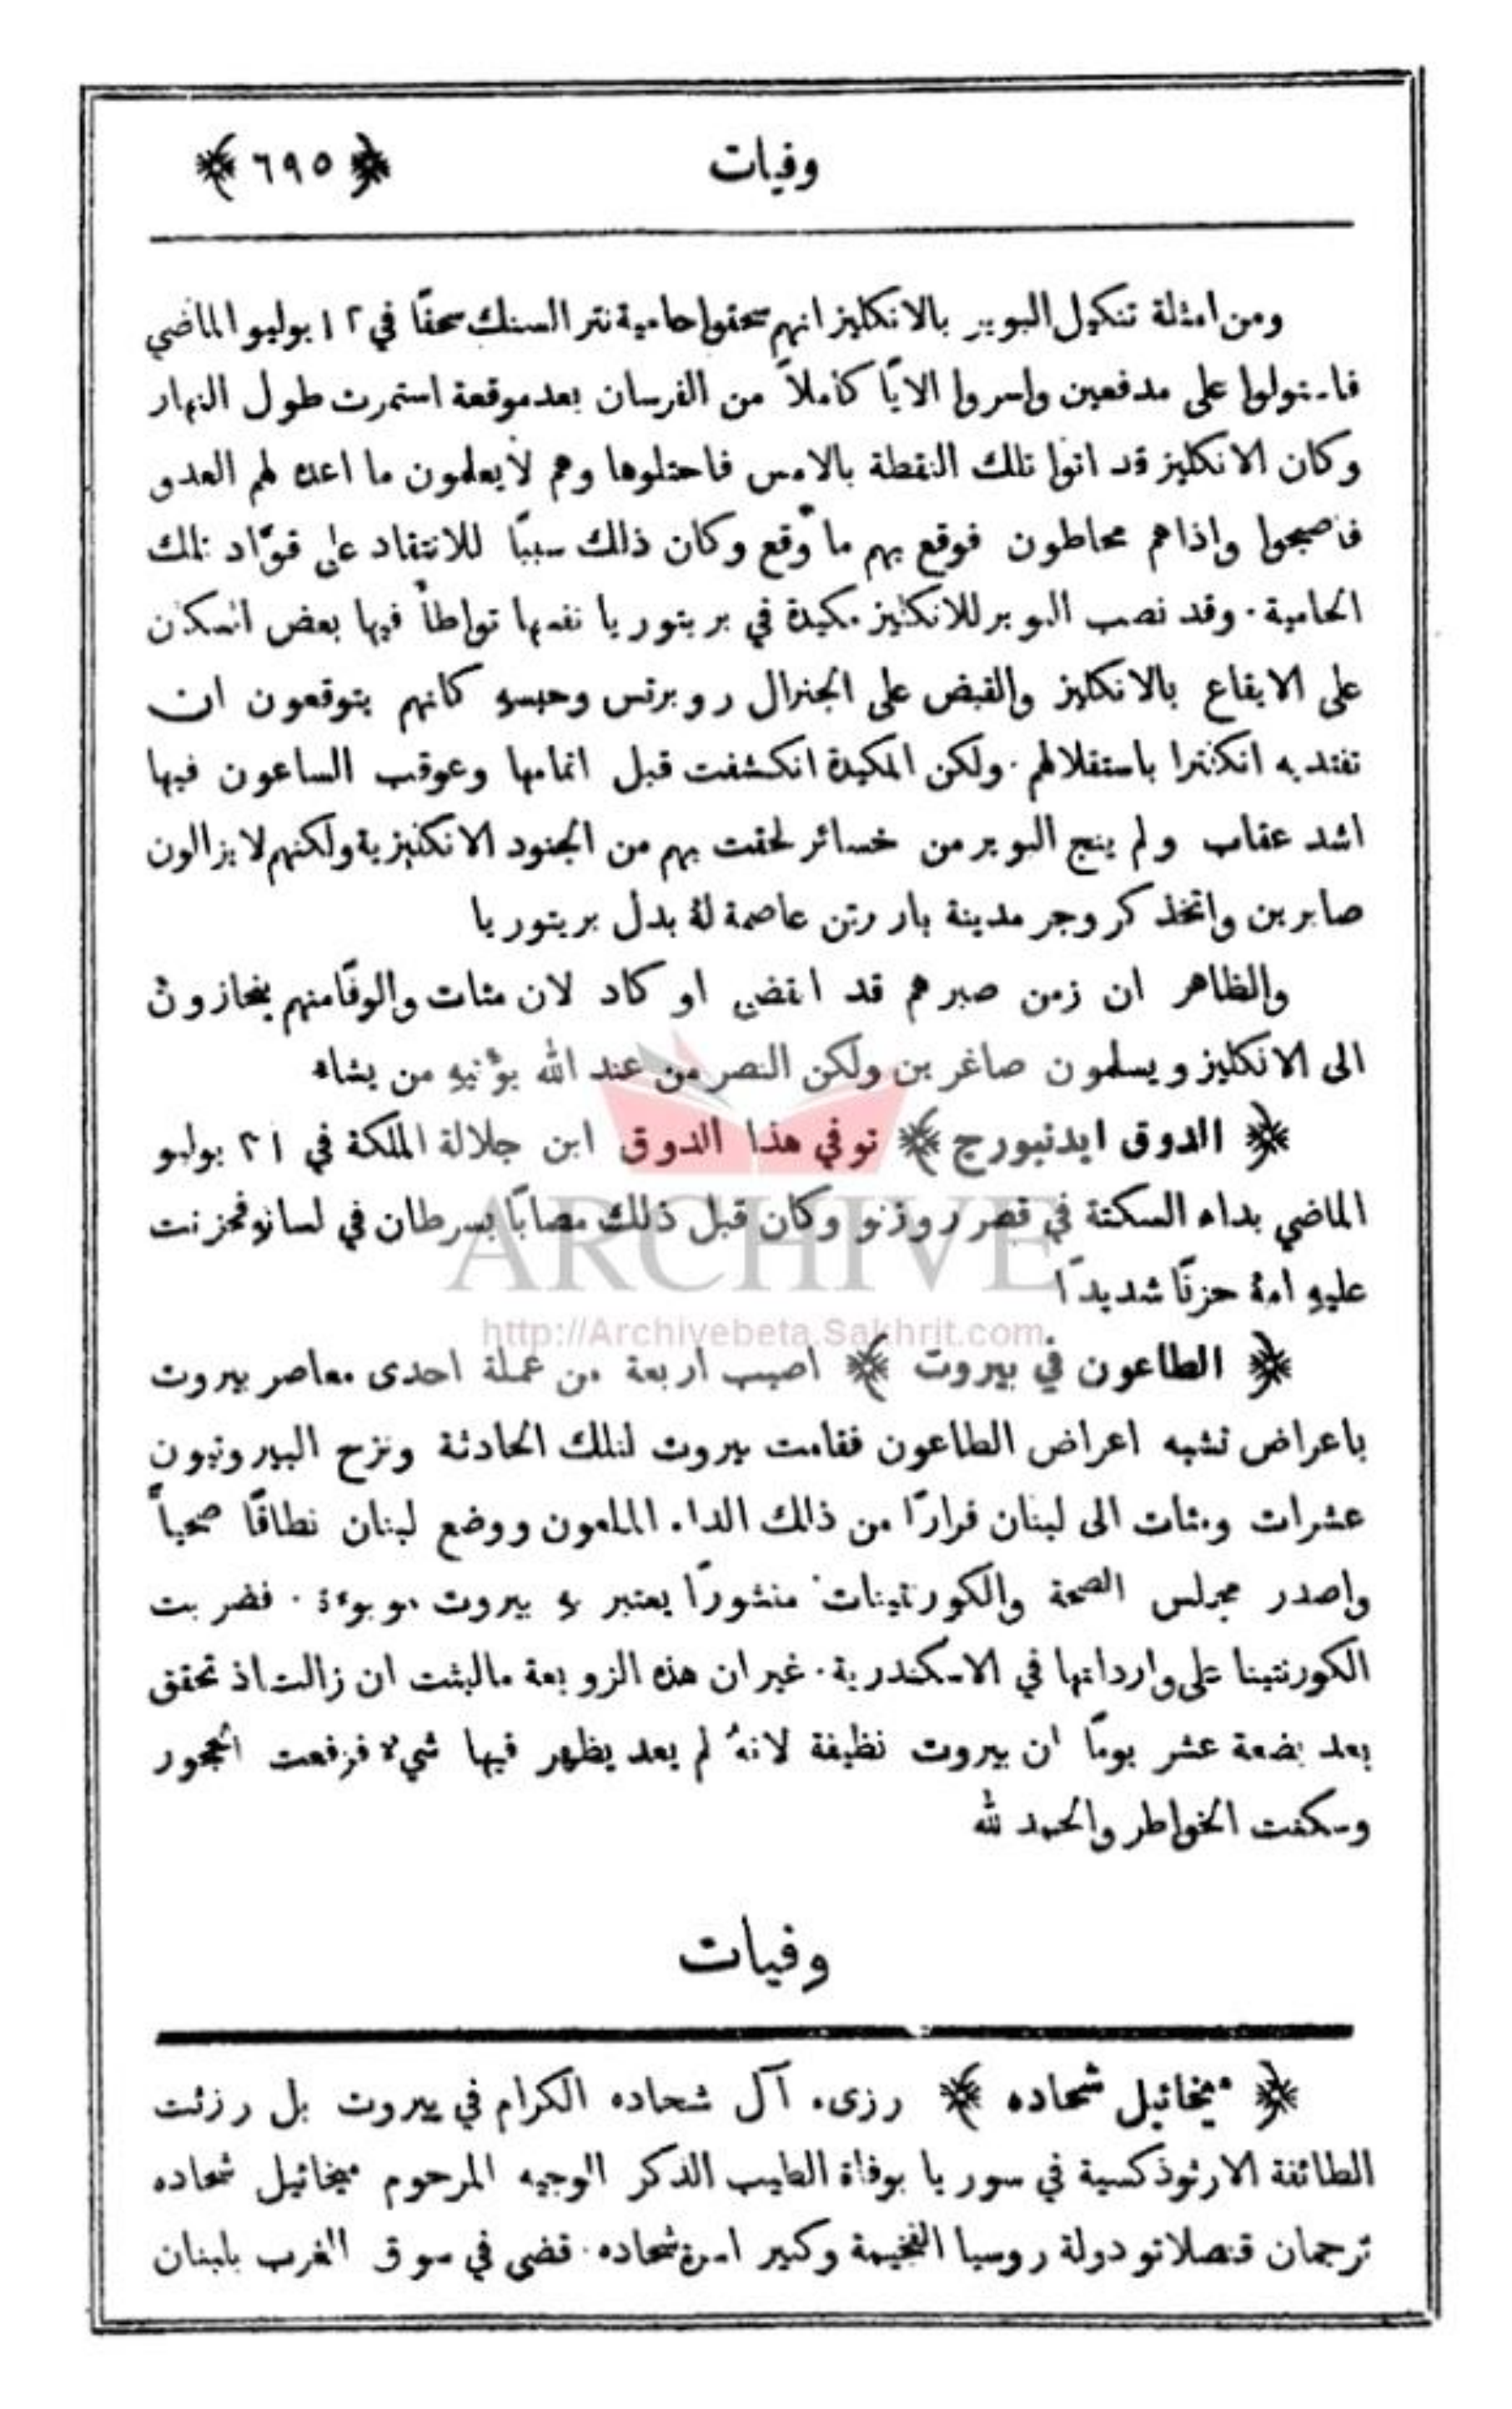 وفيات ﴿ ٦٩٥ ﴾
ومن امثلة تنكيل البوير بالانكليز انهم سحقوا حامية نتر السنك سحقًا في ١٢ يوليو الماضي
فاستولوا على مدفعين واسروا الايًا كاملاً من الفرسان بعد موقعة استمرت طول النهار
وكان الانكليز قد اتوا تلك النقطة بالامس فاحتلوها وهم لا يعلمون ما اعده لهم العدو
فاصبحوا واذا هم محاطون فوقع بهم ما وقع وكان ذلك سببًا للانتقاد على قوّاد تلك
الحامية . وقد نصب البوير للانكليز مكيدة في بريتوريا نفسها تواطأ فيها بعض السكان
على الايقاع بالانكليز والقبض على الجنرال روبرتس وحبسهِ كانهم يتوقعون ان
تفتديه انكلترا باستقلالهم . ولكن المكيدة انكشفت قبل اتمامها وعوقب الساعون فيها
اشد عقاب ولم ينج البوير من خسائر لحقت بهم من الجنود الانكليزية ولكنهم لا يزالون
صابرين واتخذ كروجر مدينة باررتن عاصمة لهُ بدل بريتوريا
والظاهر ان زمن صبرهم قد انقضى او كاد لان مئات والوفًا منهم ينحازون
الى الانكليز ويسلمون صاغرين ولكن النصر من عند الله يؤتيهِ من يشاء
﴿ الدوق ايدنبورج ﴾ توفي هذا الدوق ابن جلالة الملكة في ٢١ يوليو
الماضي بداء السكتة في قصر روزنو وكان قبل ذلك مصابًا بسرطان في لسانهِ فحزنت
عليهِ امهُ حزنًا شديدًا
ARCHIVE
http://Archivebeta.Sakhrit.com
﴿ الطاعون في بيروت ﴾ اصيب اربعة من عملة احدى معاصر بيروت
باعراض تشبه اعراض الطاعون فقامت بيروت لتلك الحادثة ونزح البيروتيون
عشرات ومئات الى لبنان فرارًا من ذالك الداء الملعون ووضع لبنان نطاقًا صحياً
واصدر مجلس الصحة والكورنتينات منشورًا يعتبر بيروت موبوءة . فضربت
الكورنتينا على وارداتها في الاسكندرية . غير ان هذه الزوبعة ما لبثت ان زالت اذ تحقق
بعد بضعة عشر يومًا ان بيروت نظيفة لانهُ لم يعد يظهر فيها شيء فرفعت الحجور
وسكنت الخواطر والحمد لله
وفيات
﴿ ميخائيل شحاده ﴾ رزىء آل شحاده الكرام في بيروت بل رزئت
الطائفة الارثوذكسية في سوريا بوفاة الطيب الذكر الوجيه المرحوم ميخائيل شحاده
ترجمان قنصلاتو دولة روسيا الفخيمة وكبير اسرة شحاده . قضى في سوق الغرب بلبنان